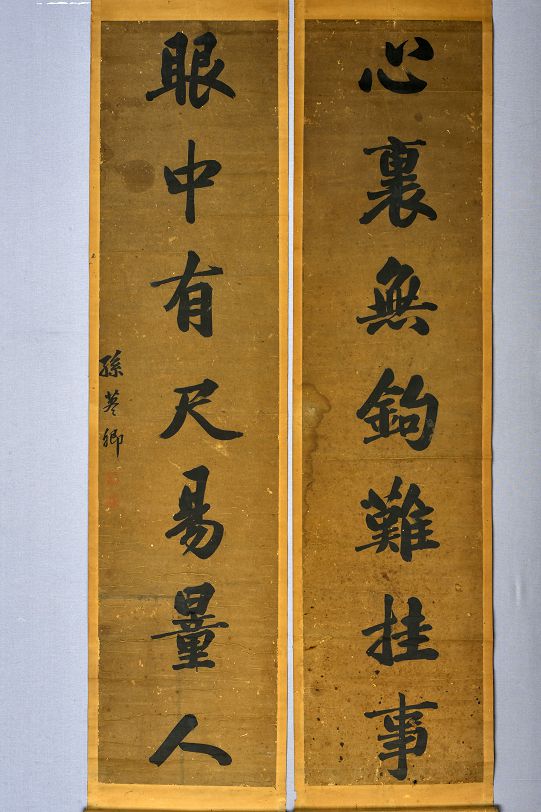 心裏無鈎難挂事
眼中有尺易量人
孫卿